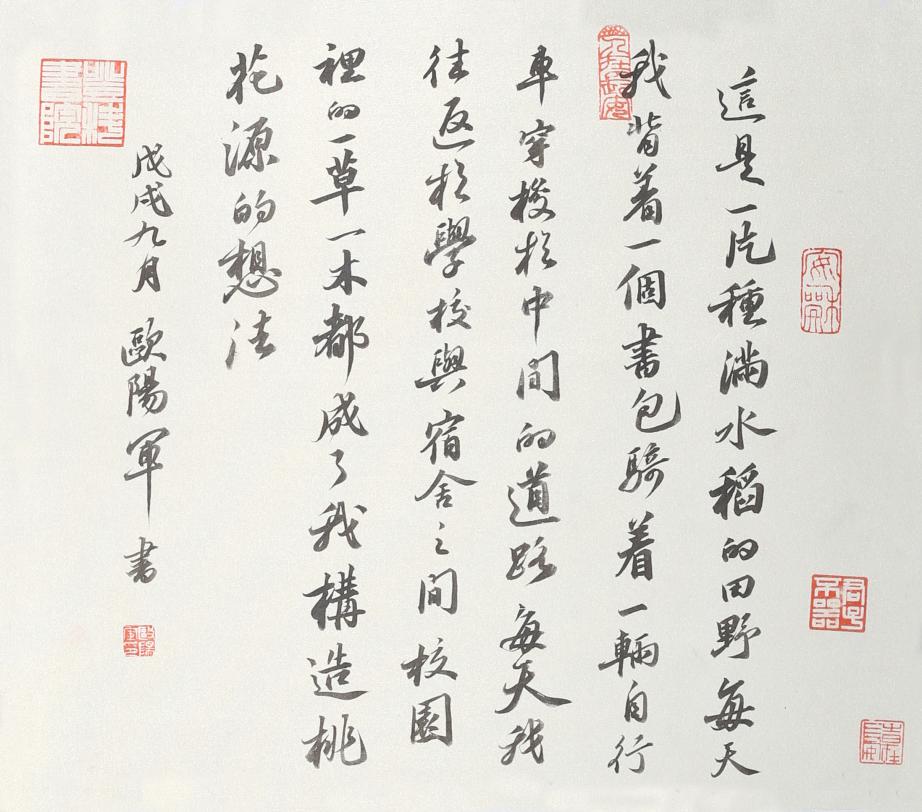 這是一片種滿水稻的田野每天
我背着一個書包騎着一輛自行
車穿梭於中間的道路每天我
往返於學校與宿舍之間校園
裡的一草一木都成了我構造桃
花源的想法
戊戌九月 歐陽軍 書
君子不器